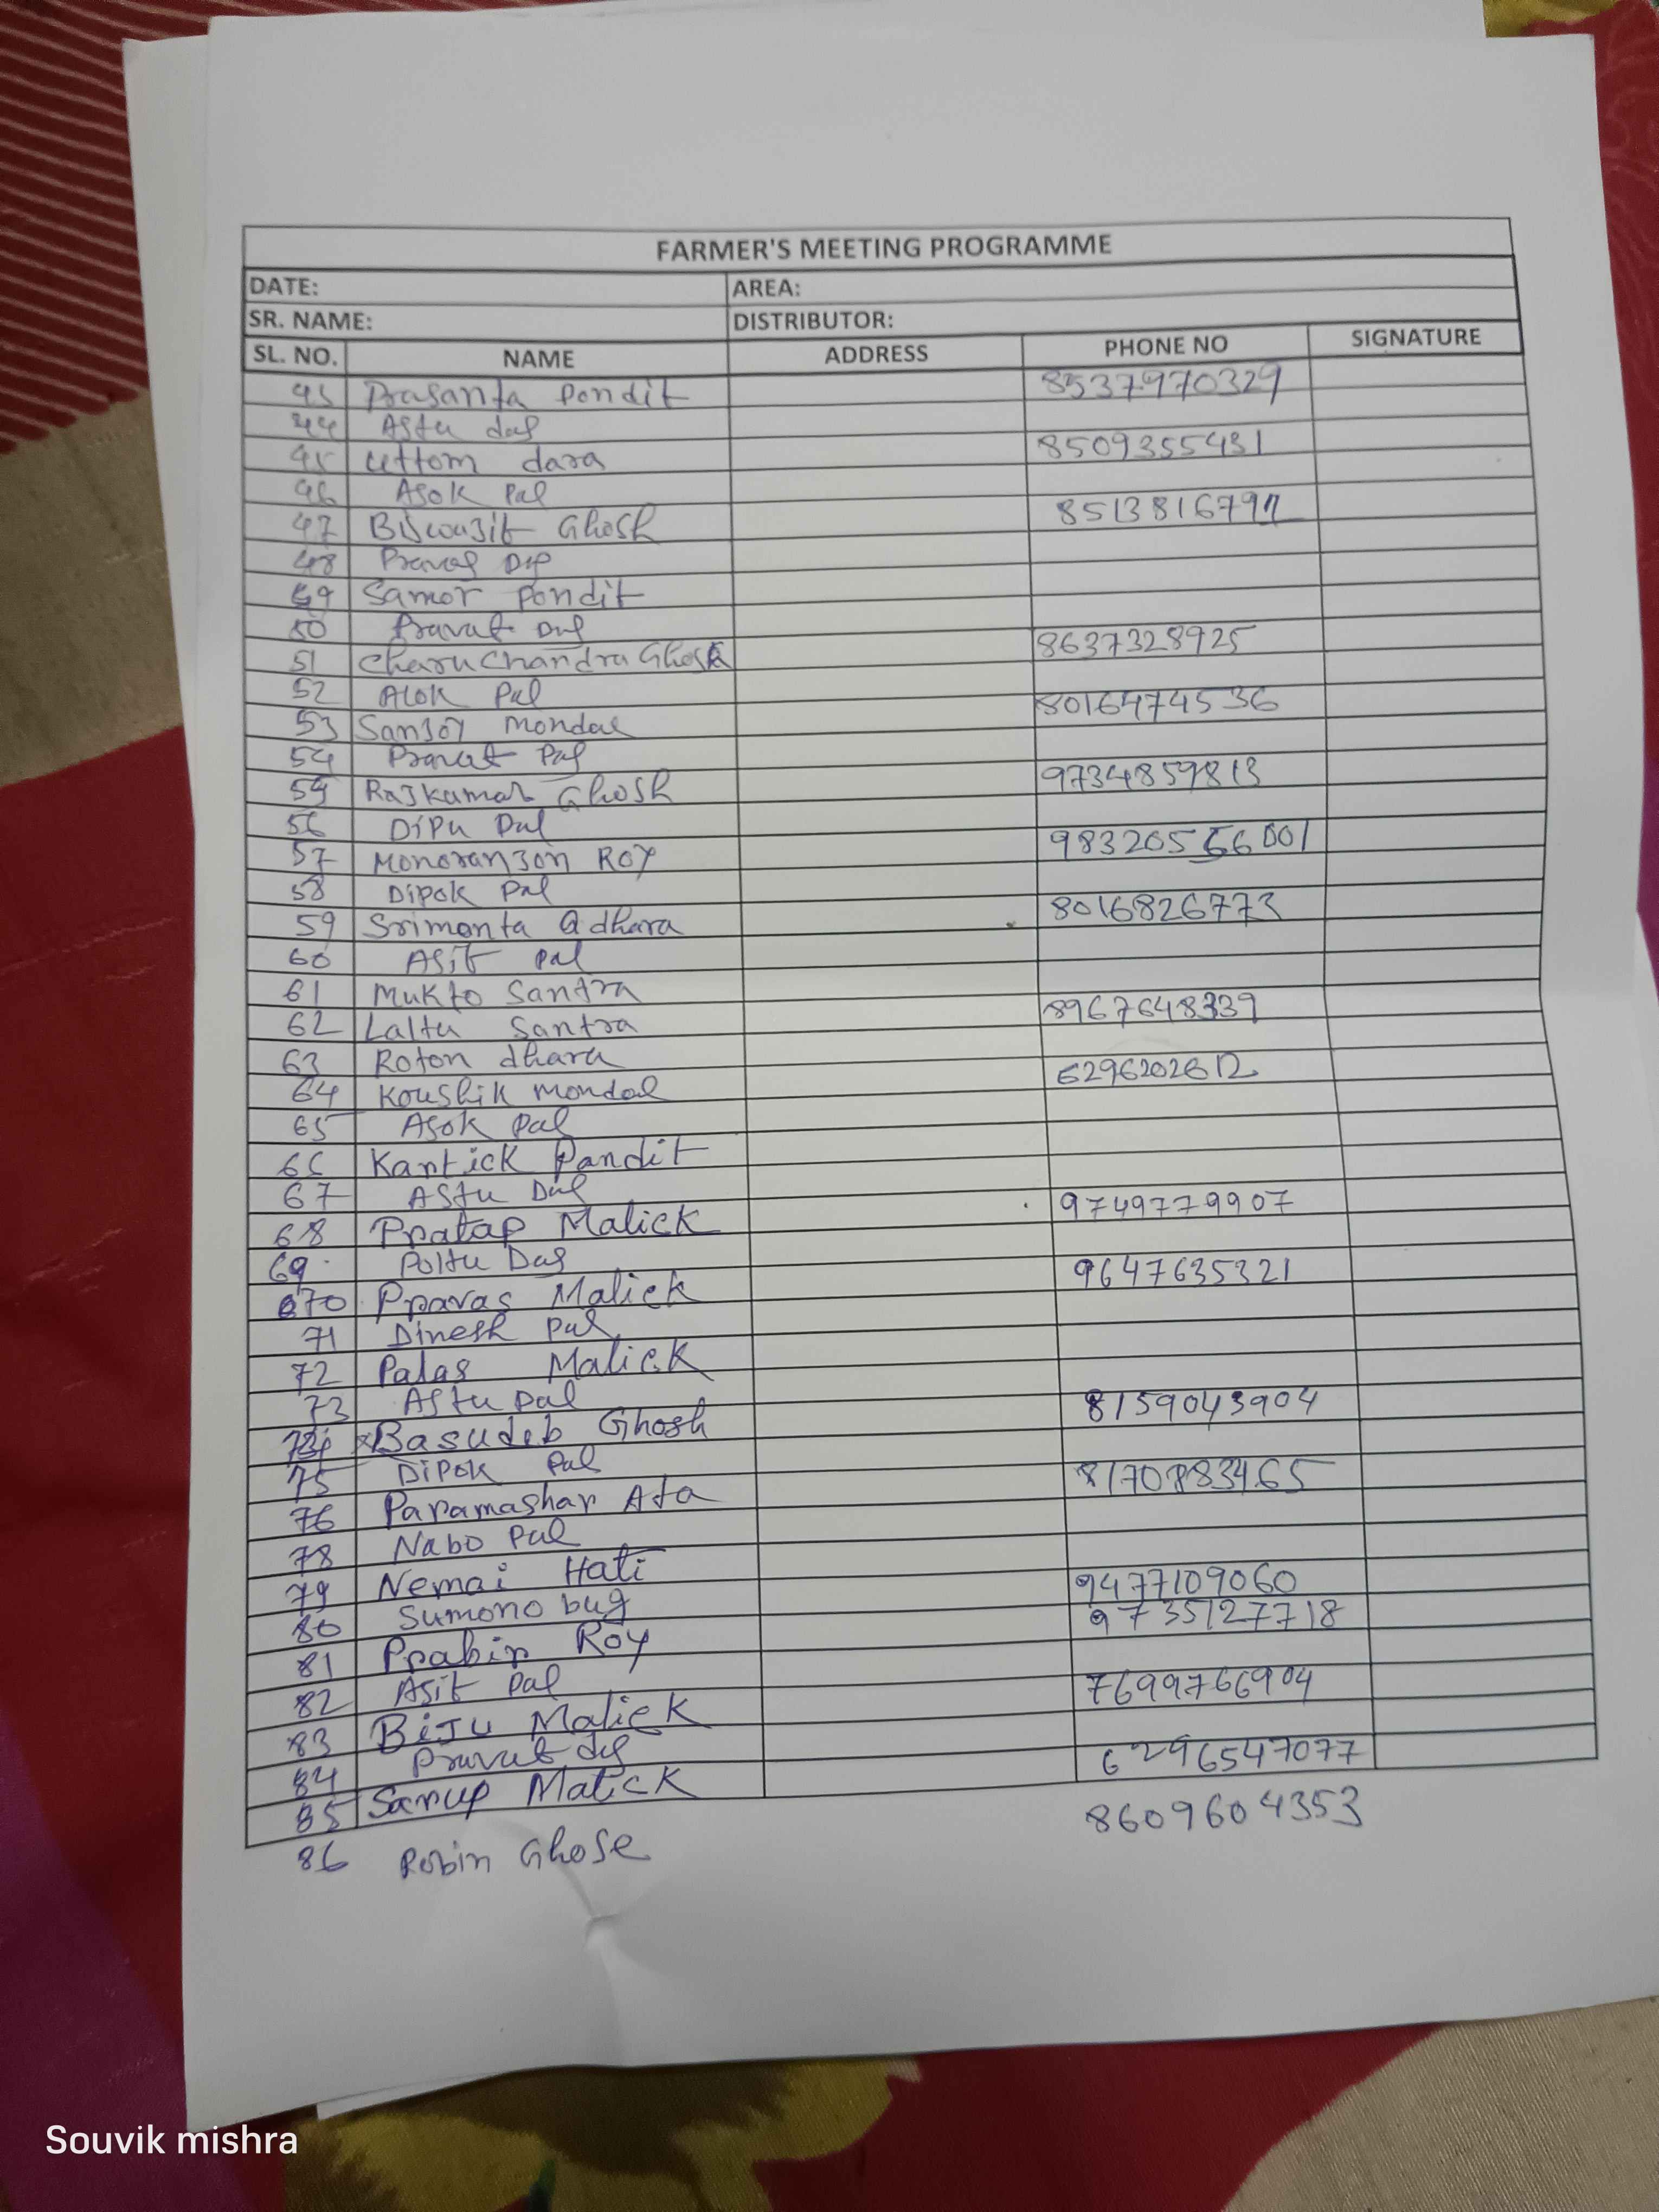 FARMER'S MEETING PROGRAMME
DATE: AREA:
SR. NAME: DISTRIBUTOR:
SL. NO. NAME ADDRESS PHONE NO SIGNATURE
43 Prasanta Pondit 8537970329
44 Astu das
45 Uttom dara 8509355431
46 Asok Pal
47 Biswajit Ghosh 8513816791
48
49 Samor Pondit
50 Pravat
51 Charu Chandra Ghosh 8637328925
52 Alok Pal
53 Sanjoy Mondal 8016474536
54 Pravat Pal
55 Rajkumar Ghosh 9734859813
56 Dipu Pal
57 Monoranjon Roy
58 Dipok Pal
59 Srimonta Adhara 8016826773
60 Asit Pal
61 Mukto Santra
62 Laltu Santra 8967648339
63 Roton dhara
64 Koushik Mondal 6296202612
65 Asok Pal
66 Kartick Pandit
67 Astu Das
68 Pratap Malick 9749779907
69 Poltu Das
70 Pravas Malick 9647635321
71 Dinesh Pal
72 Palas Malick
73 Astu Pal
74 Basudeb Ghosh 8159043904
75 Dipok Pal
76 Paramashar Ata
78 Nabo Pal
79 Nemai Hati 9477109060
80 Sumono bug 9735127718
81 Prabir Roy
82 Asit Pal 7699766904
83 Biju Malick
84 Pravat das 6296547077
85 Sarup Malick
86 Robin Ghose 8609604353
Souvik mishra